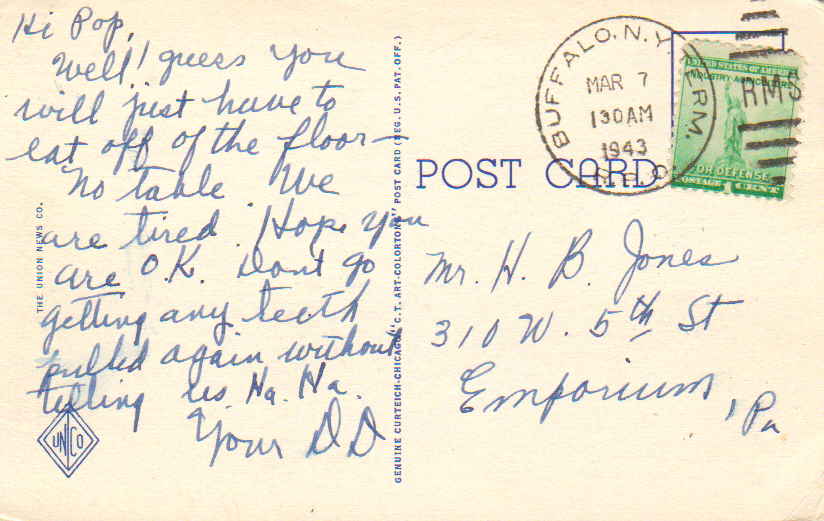 Hi Pop,
Well! guess you
will just have to
eat off of the floor—
No table We
are tired. Hope you
are O.K. Dont go
getting any teeth
pulled again without
telling us. Ha. Ha.
Your DD
THE UNION NEWS CO.
UNCO
GENUINE CURTEICH-CHICAGO "C.T. ART-COLORTONE" POST CARD (REG. U.S. PAT. OFF.)
POST CARD
BUFFALO, N.Y. TERM.
MAR 7
130AM
1943
R.P.O.
RMS
UNITED STATES OF AMERICA
INDUSTRY AGRICULTURE
FOR DEFENSE
POSTAGE 1 CENT
Mr. H. B. Jones
310 W. 5th St
Emporium,
Pa